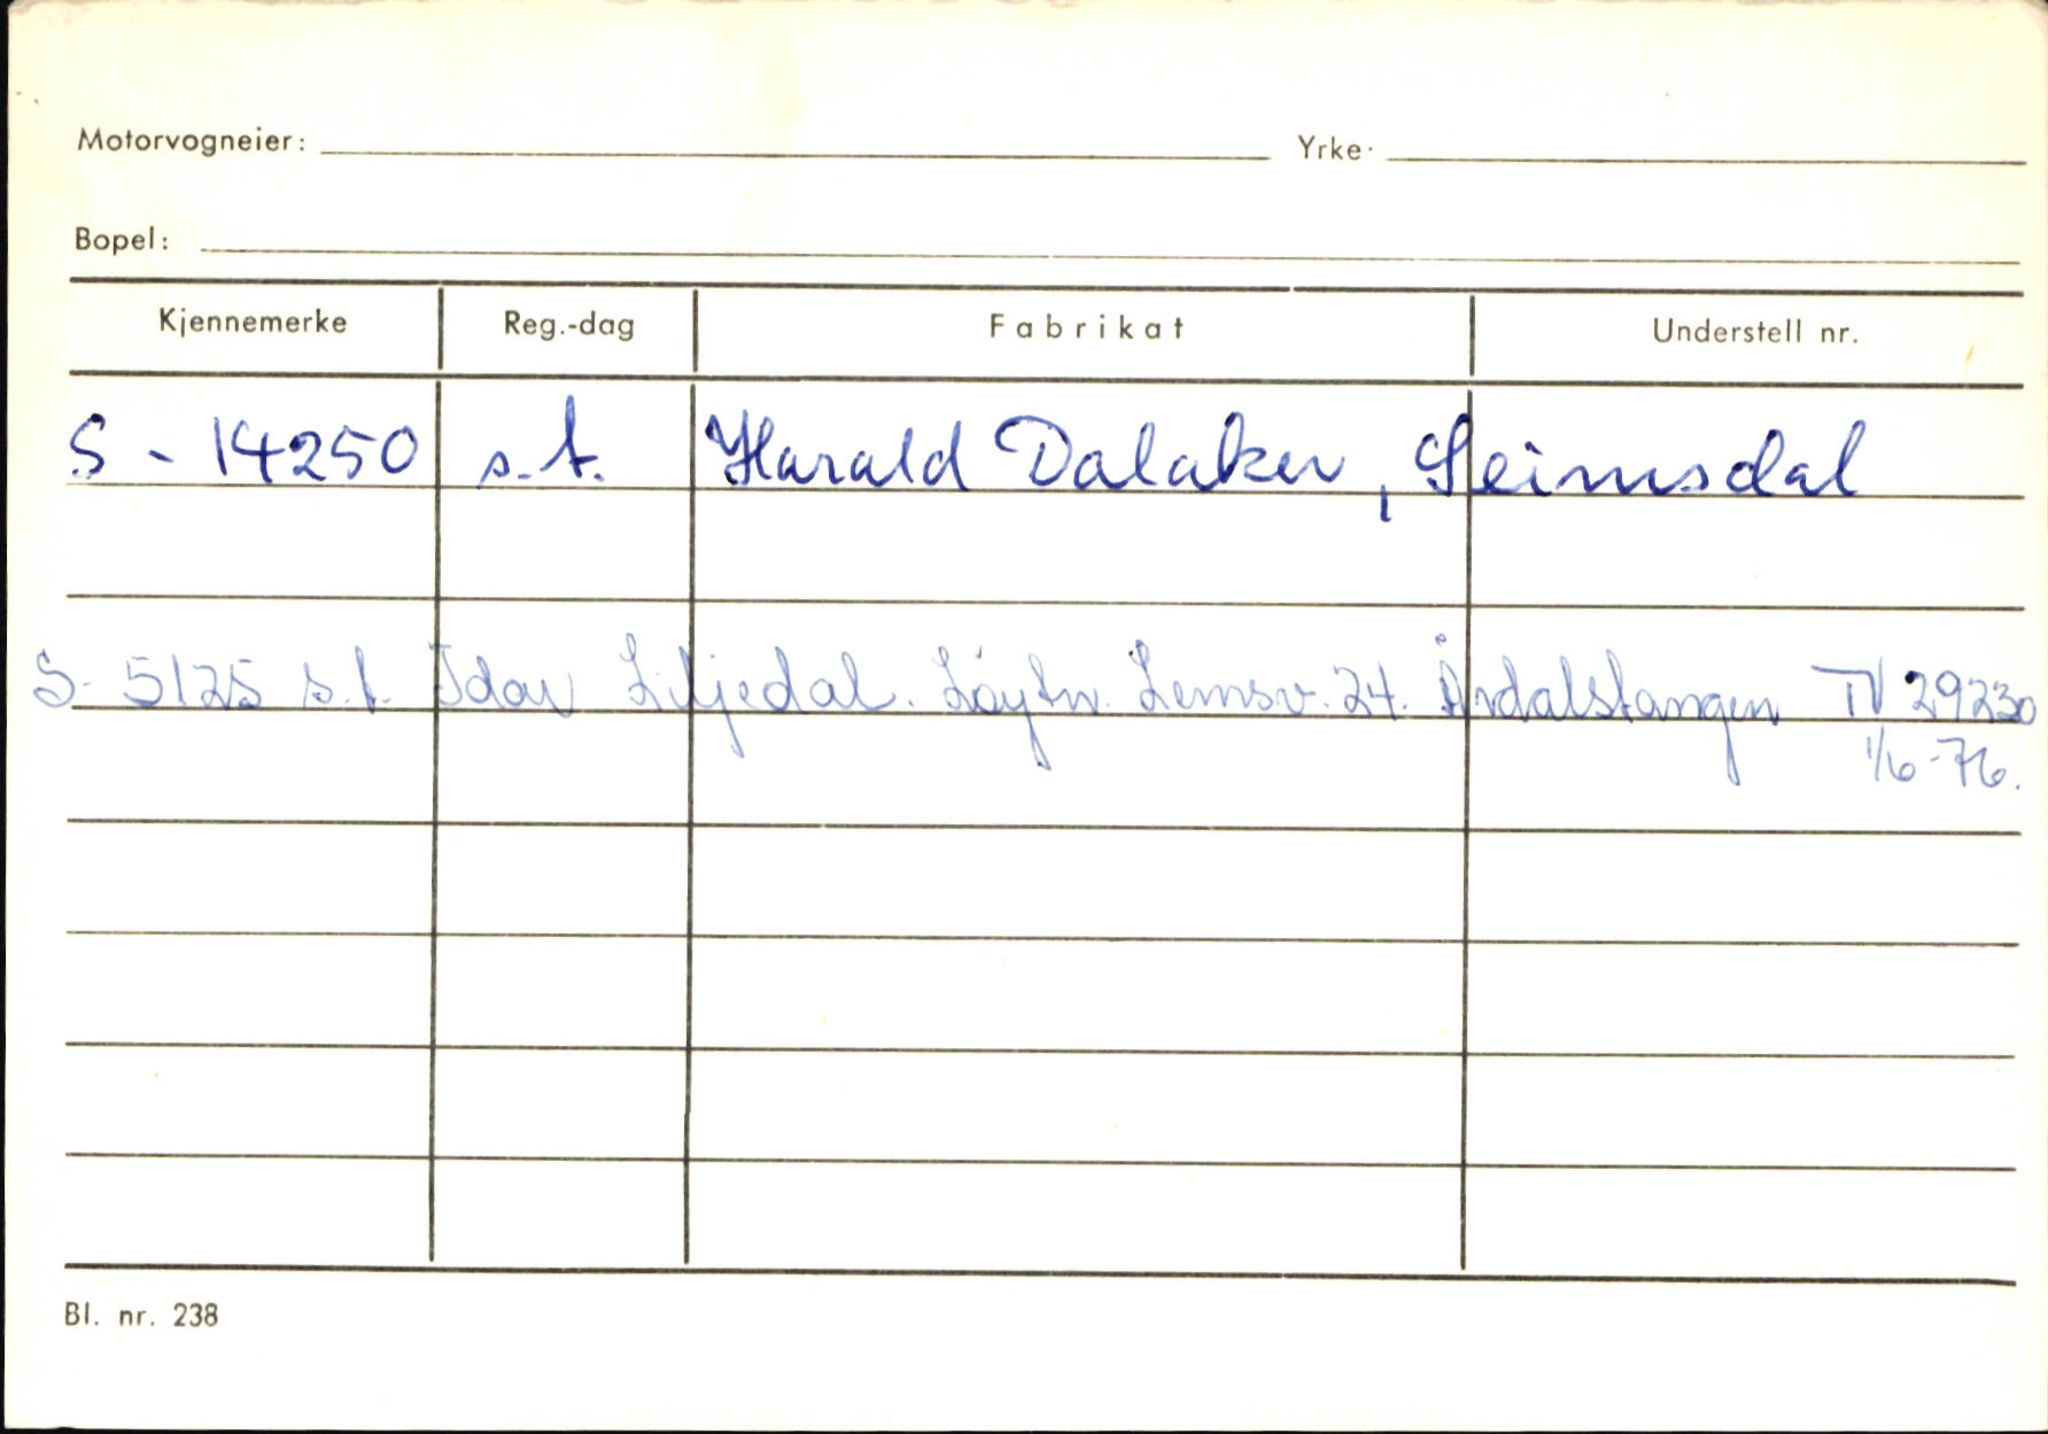 Motorvogneier: Yrke:
Bopel:
Kjennemerke Reg.-dag Fabrikat Understell nr.
S - 14250 s.t. Harald Dalaker, Seimsdal
S- 5125 s.t. Idar Liljedal. Løytn. Lemsv. 24. Årdalstangen TV 29230
1/6-76.
Bl. nr. 238